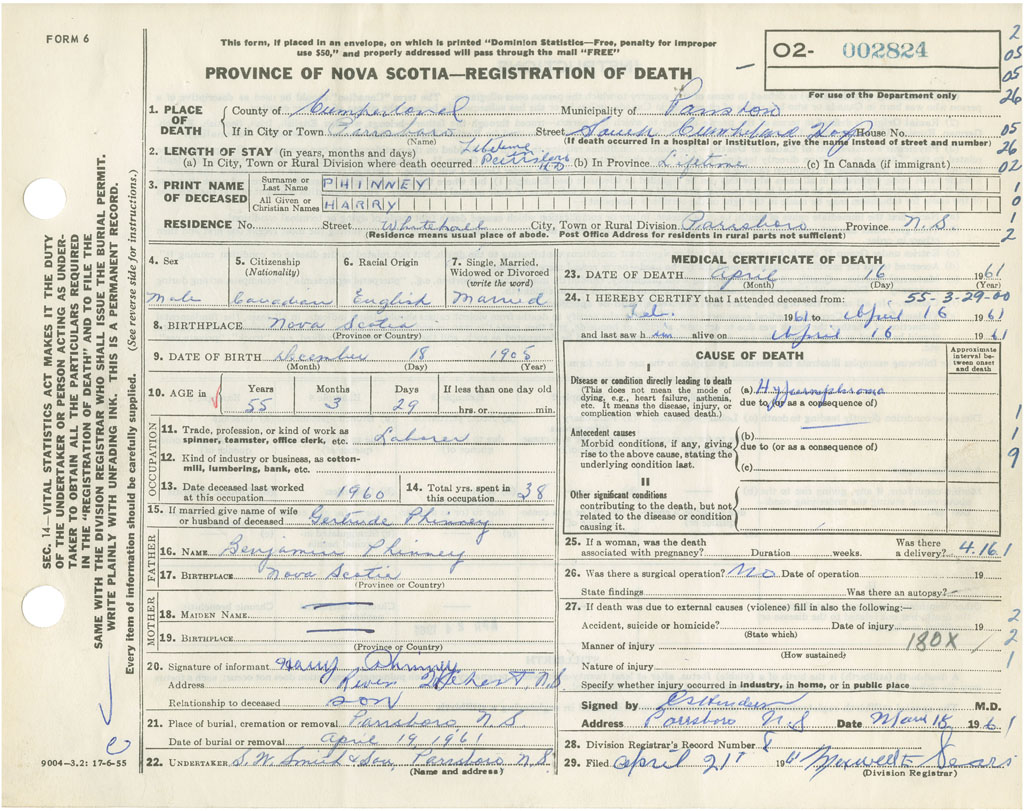 FORM 6
This form, if placed in an envelope, on which is printed "Dominion Statistics—Free, penalty for improper
use $50," and properly addressed will pass through the mail "FREE"
02- 002824
For use of the Department only
PROVINCE OF NOVA SCOTIA—REGISTRATION OF DEATH
1. PLACE OF DEATH County of Cumberland Municipality of Parrsboro
If in City or Town Parrsboro Street South Cumberland Hosp House No.
(Name) (If death occurred in a hospital or institution, give the name instead of street and number)
2. LENGTH OF STAY (in years, months and days) Lifetime
(a) In City, Town or Rural Division where death occurred (b) In Province Lifetime (c) In Canada (if immigrant)
3. PRINT NAME OF DECEASED Surname or Last Name PHINNEY
All Given or Christian Names HARRY
RESIDENCE No. Street Whitehall City, Town or Rural Division Parrsboro Province N.S.
(Residence means usual place of abode. Post Office Address for residents in rural parts not sufficient)
4. Sex 5. Citizenship (Nationality) 6. Racial Origin 7. Single, Married, Widowed or Divorced (write the word)
Male Canadian English Married
8. BIRTHPLACE Nova Scotia
(Province or Country)
9. DATE OF BIRTH December 18 1905
(Month) (Day) (Year)
10. AGE in Years Months Days If less than one day old
55 3 29 hrs. or min.
OCCUPATION
11. Trade, profession, or kind of work as spinner, teamster, office clerk, etc. Laborer
12. Kind of industry or business, as cotton-mill, lumbering, bank, etc.
13. Date deceased last worked at this occupation 1960 14. Total yrs. spent in this occupation 38
15. If married give name of wife or husband of deceased Gertrude Phinney
FATHER
16. NAME Benjamin Phinney
17. BIRTHPLACE Nova Scotia
(Province or Country)
MOTHER
18. MAIDEN NAME
19. BIRTHPLACE
(Province or Country)
20. Signature of informant Harry Phinney
Address River Hebert, N.S
Relationship to deceased son
21. Place of burial, cremation or removal Parrsboro N S
Date of burial or removal April 19, 1961
22. UNDERTAKER S. W. Smith & Son, Parrsboro N.S.
(Name and address)
MEDICAL CERTIFICATE OF DEATH
23. DATE OF DEATH April 16 1961
(Month) (Day) (Year)
24. I HEREBY CERTIFY that I attended deceased from: 55-3-29-00
Feb. 1961 to April 16 1961
and last saw him alive on April 16 1961
CAUSE OF DEATH
Approximate interval between onset and death
I
Disease or condition directly leading to death
(This does not mean the mode of dying, e.g., heart failure, asthenia, etc. It means the disease, injury, or complication which caused death.)
(a) Hypernephroma
due to (or as a consequence of)
Antecedent causes
Morbid conditions, if any, giving rise to the above cause, stating the underlying condition last.
(b)
due to (or as a consequence of)
(c)
II
Other significant conditions
contributing to the death, but not related to the disease or condition causing it.
25. If a woman, was the death associated with pregnancy? Duration weeks. Was there a delivery? 4.16.1
26. Was there a surgical operation? No Date of operation 19
State findings Was there an autopsy?
27. If death was due to external causes (violence) fill in also the following:—
Accident, suicide or homicide? Date of injury 19
(State which)
Manner of injury 180X
(How sustained)
Nature of injury
Specify whether injury occurred in industry, in home, or in public place
Signed by M.D.
Address Parrsboro N.S. Date 18 1961
28. Division Registrar's Record Number 8
29. Filed April 21st 19 Maxwell E Sears
(Division Registrar)
SEC. 14—VITAL STATISTICS ACT MAKES IT THE DUTY
OF THE UNDERTAKER OR PERSON ACTING AS UNDER-
TAKER TO OBTAIN ALL THE PARTICULARS REQUIRED
IN THE "REGISTRATION OF DEATH" AND TO FILE THE
SAME WITH THE DIVISION REGISTRAR WHO SHALL ISSUE THE BURIAL PERMIT.
WRITE PLAINLY WITH UNFADING INK. THIS IS A PERMANENT RECORD.
Every item of information should be carefully supplied. (See reverse side for instructions.)
9004—3.2: 17-6-55
2
05
05
26
05
26
02
1
0
1
2
1
1
9
1
2
2
1